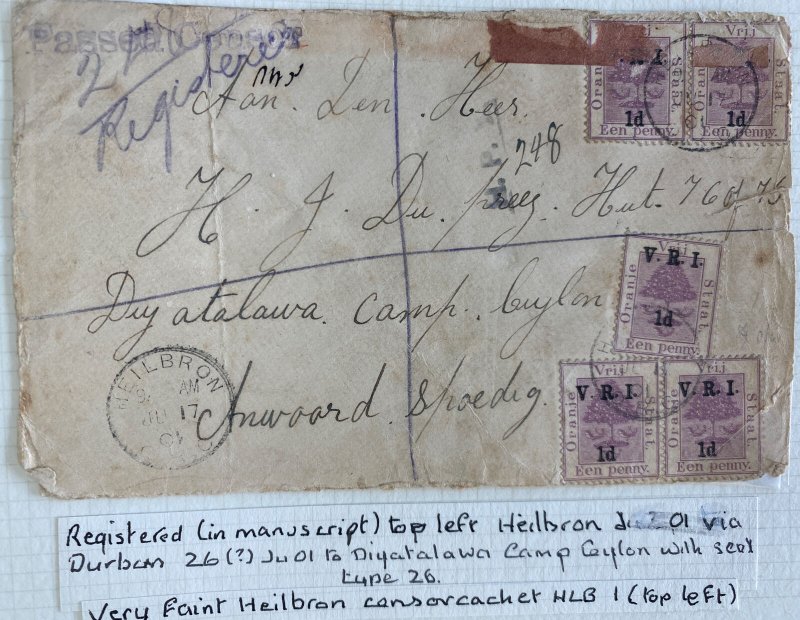 Passed Censor
Registered
Aan Den Heer
248
H. J. Du Preez. Hut. 76
Diyatalawa Camp. Ceylon
Anwoord Spoedig.
HEILBRON
AM
JU 17
01
Vrij
V. R. I.
Oranje
Staat
1d
Een penny.
Vrij
Oranje
Staat
1d
Een penny.
Vrij
V. R. I.
Oranje
Staat
1d
Een penny.
Vrij
V. R. I.
Oranje
Staat
1d
Een penny.
Vrij
V. R. I.
Oranje
Staat
1d
Een penny.
Registered (in manuscript) top left Heilbron 01 via
Durban 26 (?) Ju 01 to Diyatalawa Camp Ceylon with seal
type 26.
Very Faint Heilbron censorcachet HLB 1 (top left)